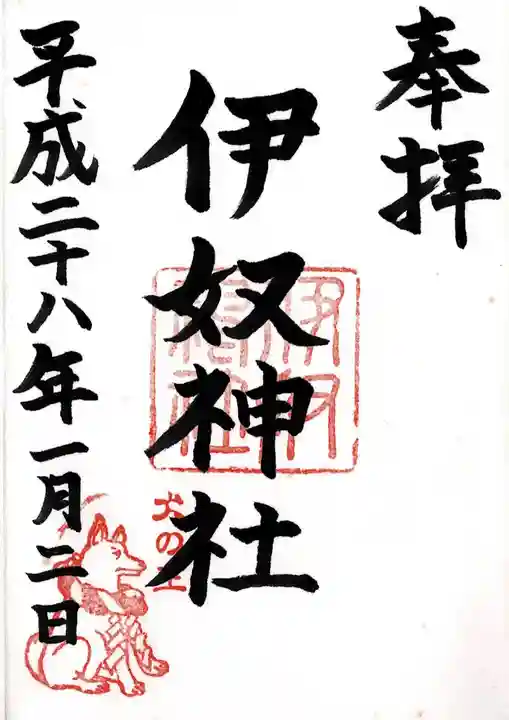 奉拝
伊奴神社
犬の王
平成二十八年一月二日